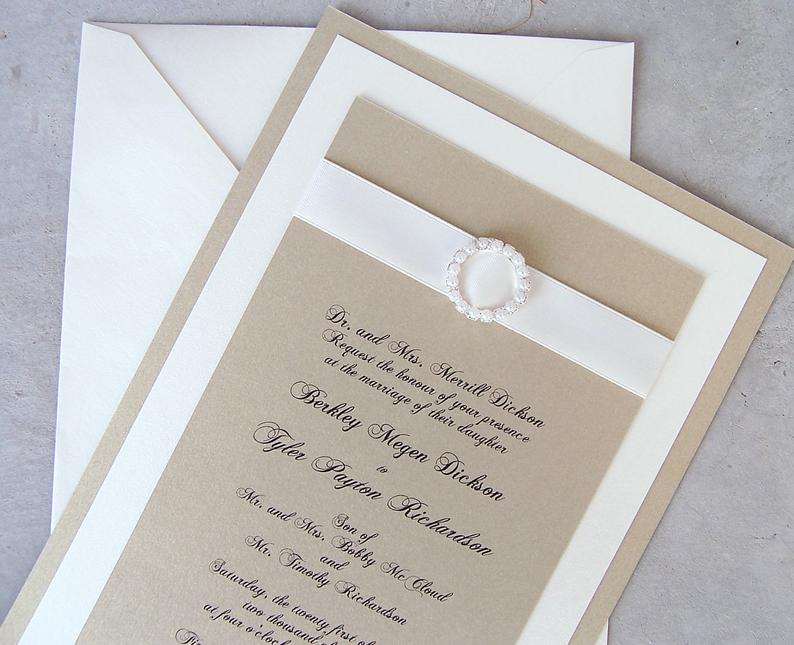 Dr. and Mrs. Merrill Dickson
Request the honour of your presence
at the marriage of their daughter
Berkley Megen Dickson
to
Tyler Payton Richardson
Son of
Mr. and Mrs. Bobby McCloud
and
Mr. Timothy Richardson
Saturday, the twenty first of
two thousand
at four o'clock